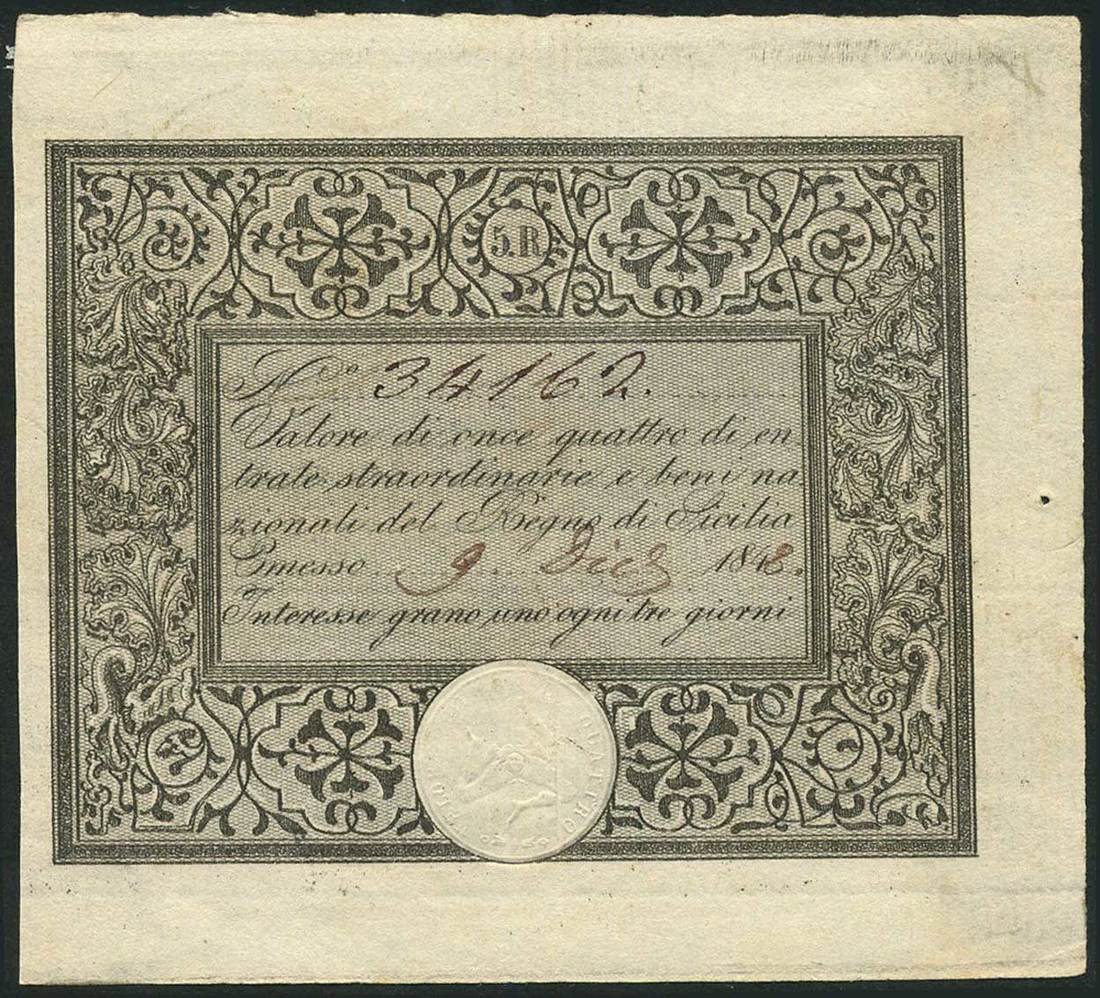 5.R
N.º 34162.
Valore di once quattro di en
trate straordinarie e beni na
zionali del Regno di Sicilia
Emesso 9. Dice 1848.
Interesse grano uno ogni tre giorni
QUATTRO